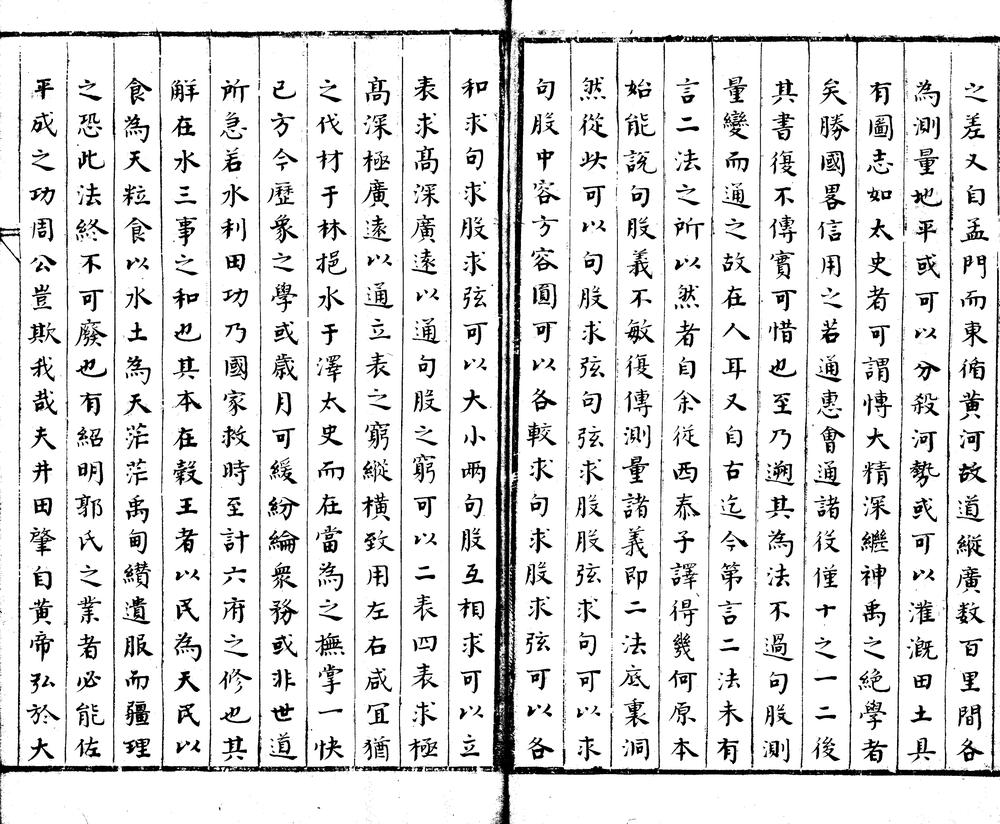 之差又自孟門而東循黄河故道縱廣数百里間各
為測量地平或可以分殺河勢或可以漼漑田土具
有圖志如太史者可謂慱大精深繼神禹之絶學者
矣勝國畧信用之若通惠會通諸役僅十之一二後
其書復不傳實可惜也至乃遡其為法不過句股測
量變而通之故在人耳又自古迄今第言二法未有
言二法之所以然者自余從西泰子譯得幾何原本
始能說句股義不敏復傳測量諸義即二法底裏洞
然從此可以句股求弦句弦求股股弦求句可以求
句股中容方容圓可以各較求句求股求弦可以各
和求句求股求弦可以大小兩句股互相求可以立
表求髙深廣遠以通句股之窮可以二表四表求極
髙深極廣遠以通立表之窮縱横致用左右咸冝猶
之伐材于林挹水于澤太史而在當為之撫掌一快
已方今歴象之學或歳月可緩紛綸衆務或非世道
所急若水利田功乃國家救時至計六府之修也其
觧在水三事之和也其本在穀王者以民為天民以
食為天粒食以水土為天茫茫禹甸纘遺服而疆理
之恐此法終不可廢也有紹明郭氏之業者必能佐
平成之功周公豈欺我哉夫井田肇自黄帝弘於大